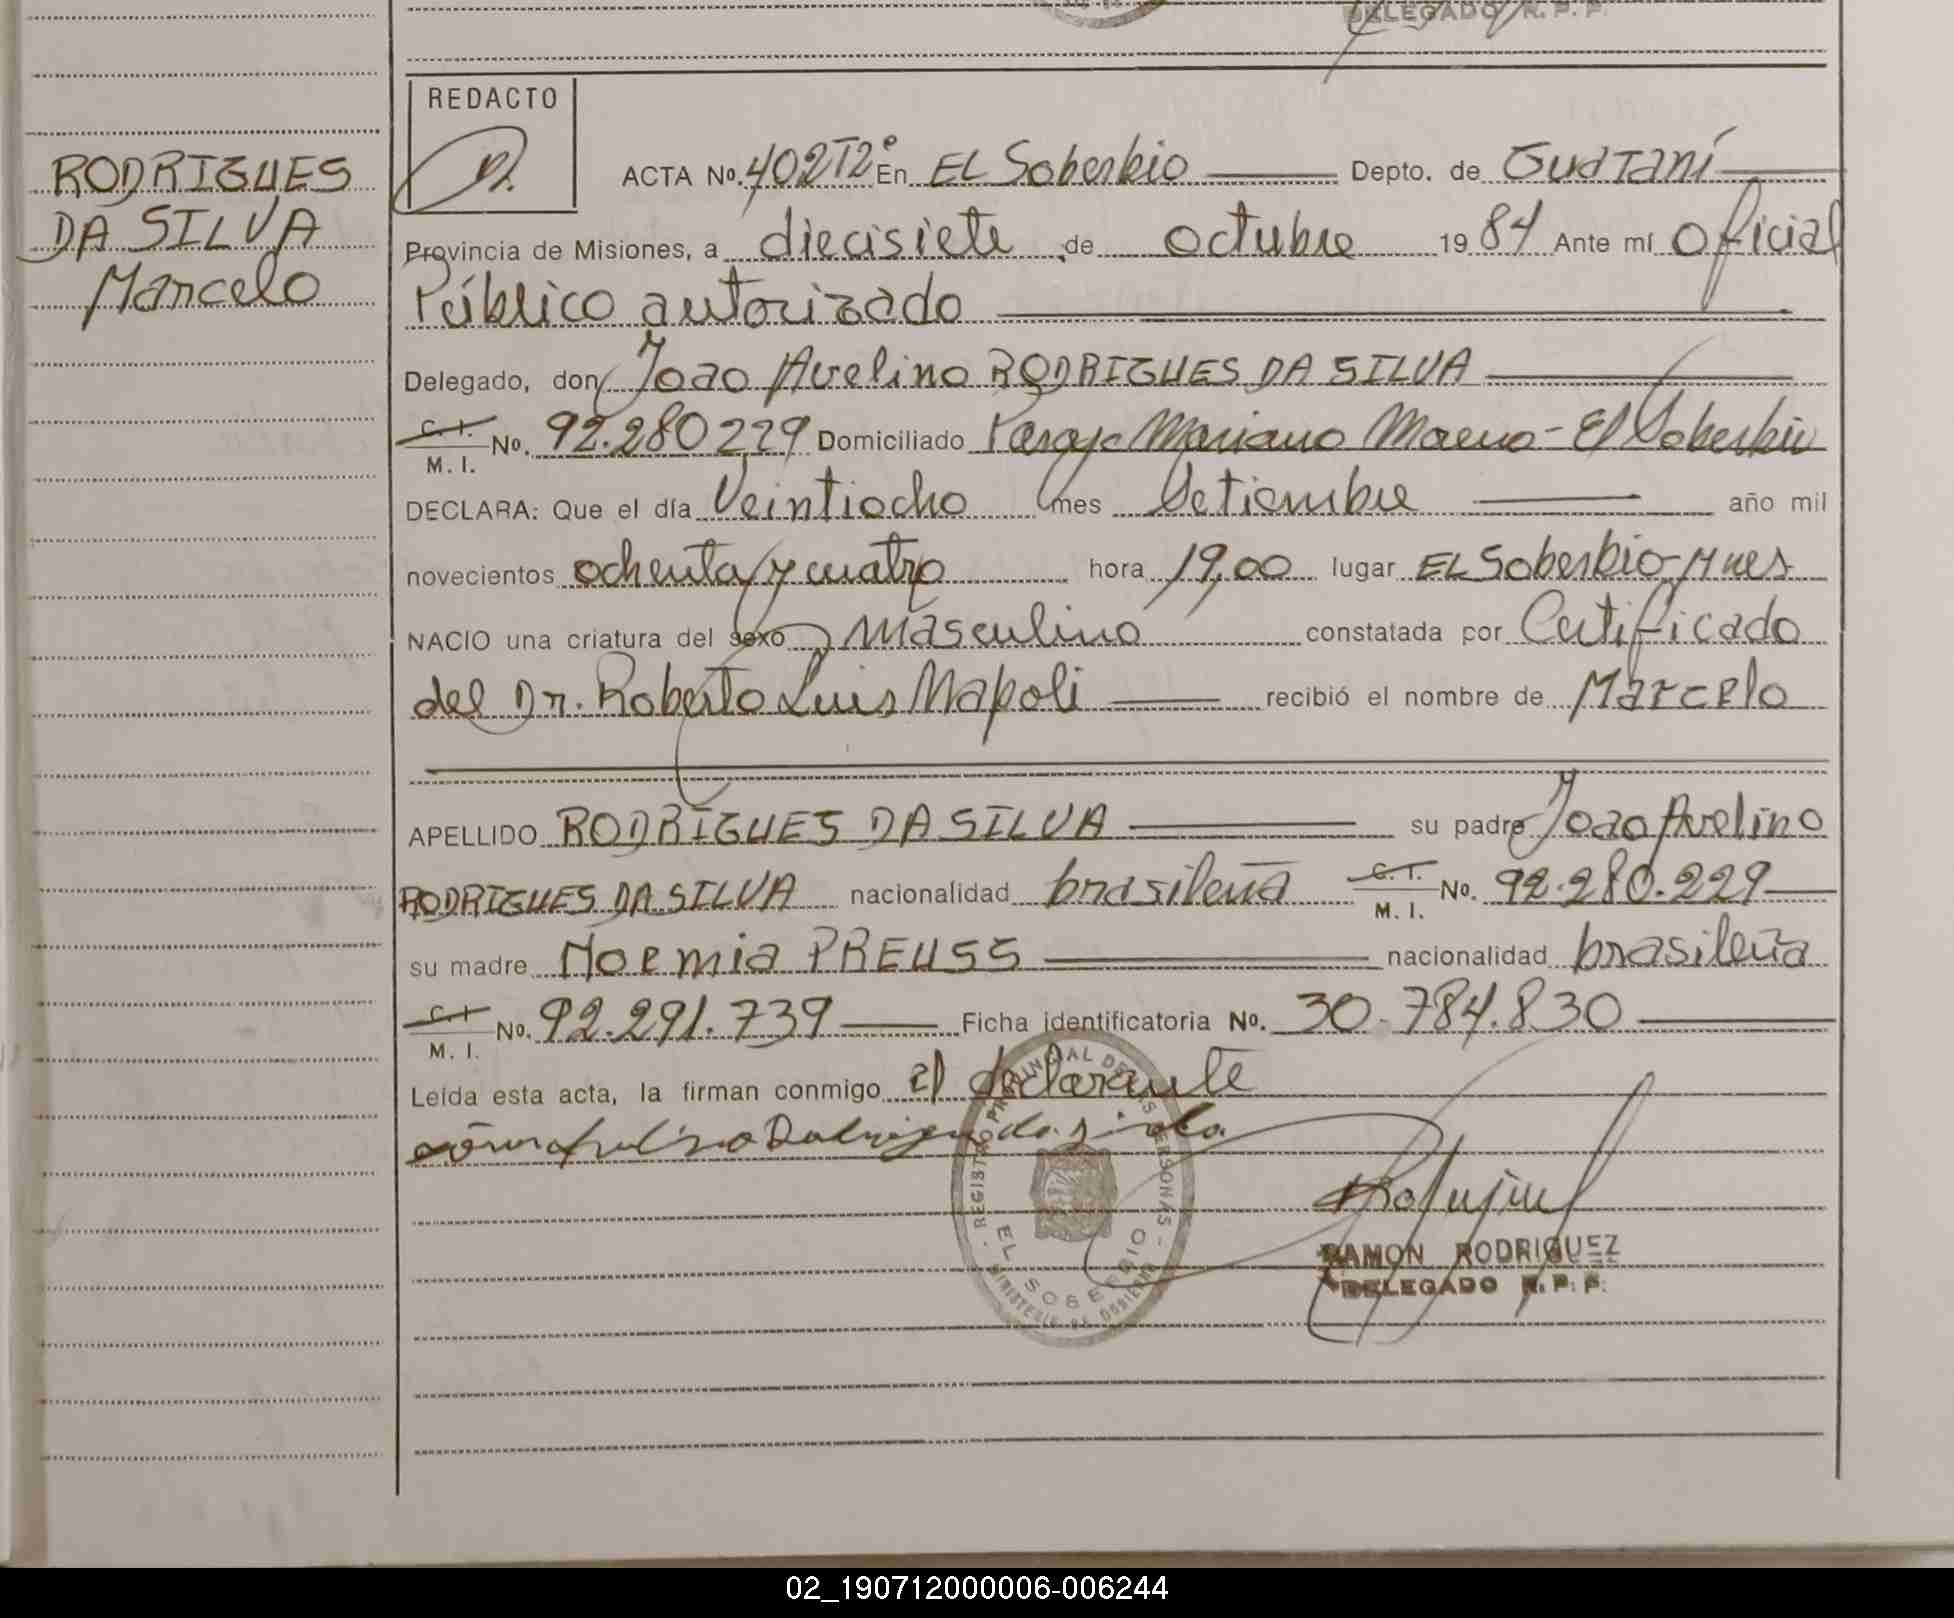 DELEGADO R. P. P.
REDACTO
RODRIGUES
DA SILVA
Marcelo
ACTA No. 402 T2° En EL Soberbio Depto. de Guaraní
Provincia de Misiones, a diecisiete de octubre 1984 Ante mí Oficial
Público autorizado
Delegado, don Joao Avelino RODRIGUES DA SILVA
C. I. M. I. No. 92.280229 Domiciliado Paraje Mariano Moreno - El Soberbio
DECLARA: Que el día Veintiocho mes Setiembre año mil
novecientos ochenta y cuatro hora 19,00 lugar EL Soberbio - Mnes
NACIO una criatura del sexo masculino constatada por Certificado
del Dr. Roberto Luis Napoli recibió el nombre de Marcelo
APELLIDO RODRIGUES DA SILVA su padre Joao Avelino
RODRIGUES DA SILVA nacionalidad brasileña C. I. M. I. No. 92.280.229
su madre Noemia PREUSS nacionalidad brasileña
C. I. M. I. No. 92.291.739 Ficha identificatoria No. 30.784.830
Leída esta acta, la firman conmigo el declarante
REGISTRO PROVINCIAL DE LAS PERSONAS
EL SOBERBIO
MINISTERIO DE GOBIERNO
RAMON RODRIGUEZ
DELEGADO R. P. P.
02_190712000006-006244